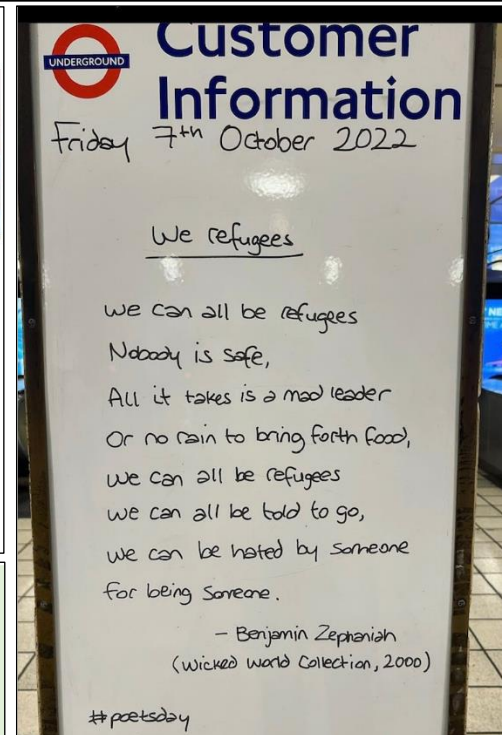 Customer
UNDERGROUND
Information
Friday 7th October 2022
We refugees
We can all be refugees
Nobody is safe,
All it takes is a mad leader
Or no rain to bring forth food,
We can all be refugees
We can all be told to go,
We can be hated by someone
For being someone.
- Benjamin Zephaniah
(Wicked World Collection, 2000)
#poetsday